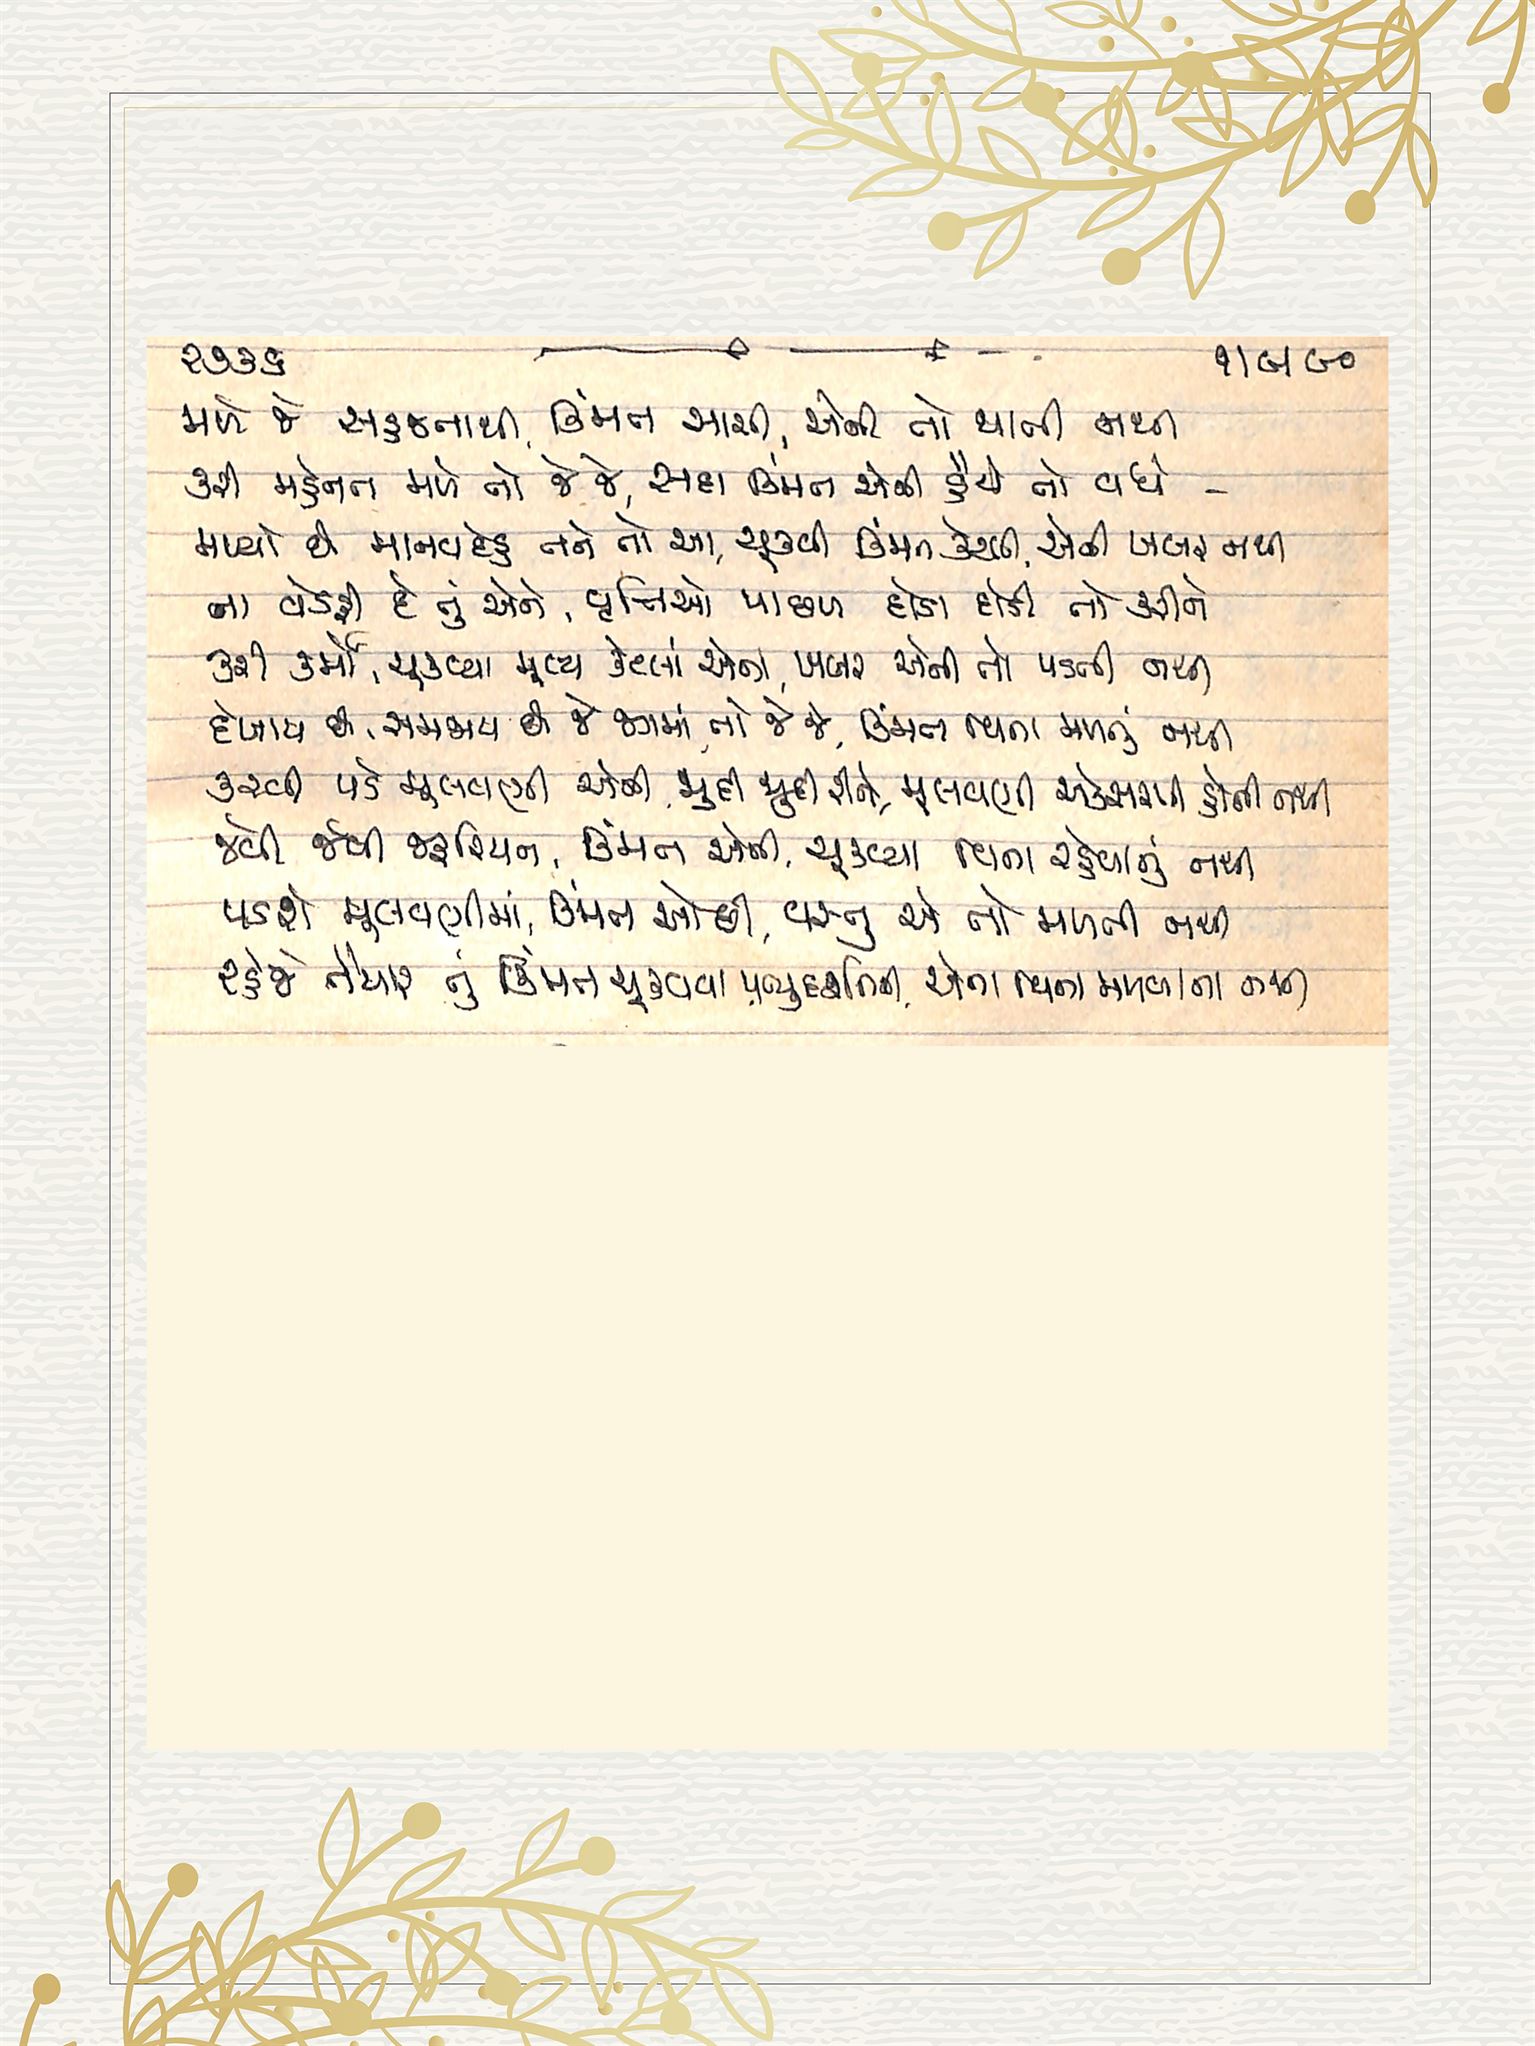 ૨૭૩૬ ૧/૯/૯૦
મળે જે સહજતાથી, કિંમત આછી, એની તો થાતી નથી
કરી મહેનત મળે તો જે જે, સદા કિંમત એની હૈયે તો વધે -
મળ્યો છે માનવદેહ તને તો આ, ચૂકવી કિંમત કેટલી, એની ખબર નથી
ના વેડફી દે તું એને, વૃત્તિઓ પાછળ દોડા દોડી તો કરીને
કરી કર્મો, ચૂકવ્યા મૂલ્ય કેટલાં એના, ખબર એની તો પડતી નથી
દેખાય છે, સમજાય છે જે જગમાં, તો જે જે, કિંમત વિના મળતું નથી
કરવી પડે મૂલવણી એની, જુદી જુદી રીતે, મૂલવણી એકસરખી હોતી નથી
જેવી જેની જરૂરિયાત, કિંમત એની, ચૂકવ્યા વિના રહેવાનું નથી
પડશે મૂલવણીમાં, કિંમત ઓછી, વસ્તુ એ તો મળતી નથી
રહેજે તૈયાર તું કિંમત ચૂકવવા, એના વિના મળવાના નથી